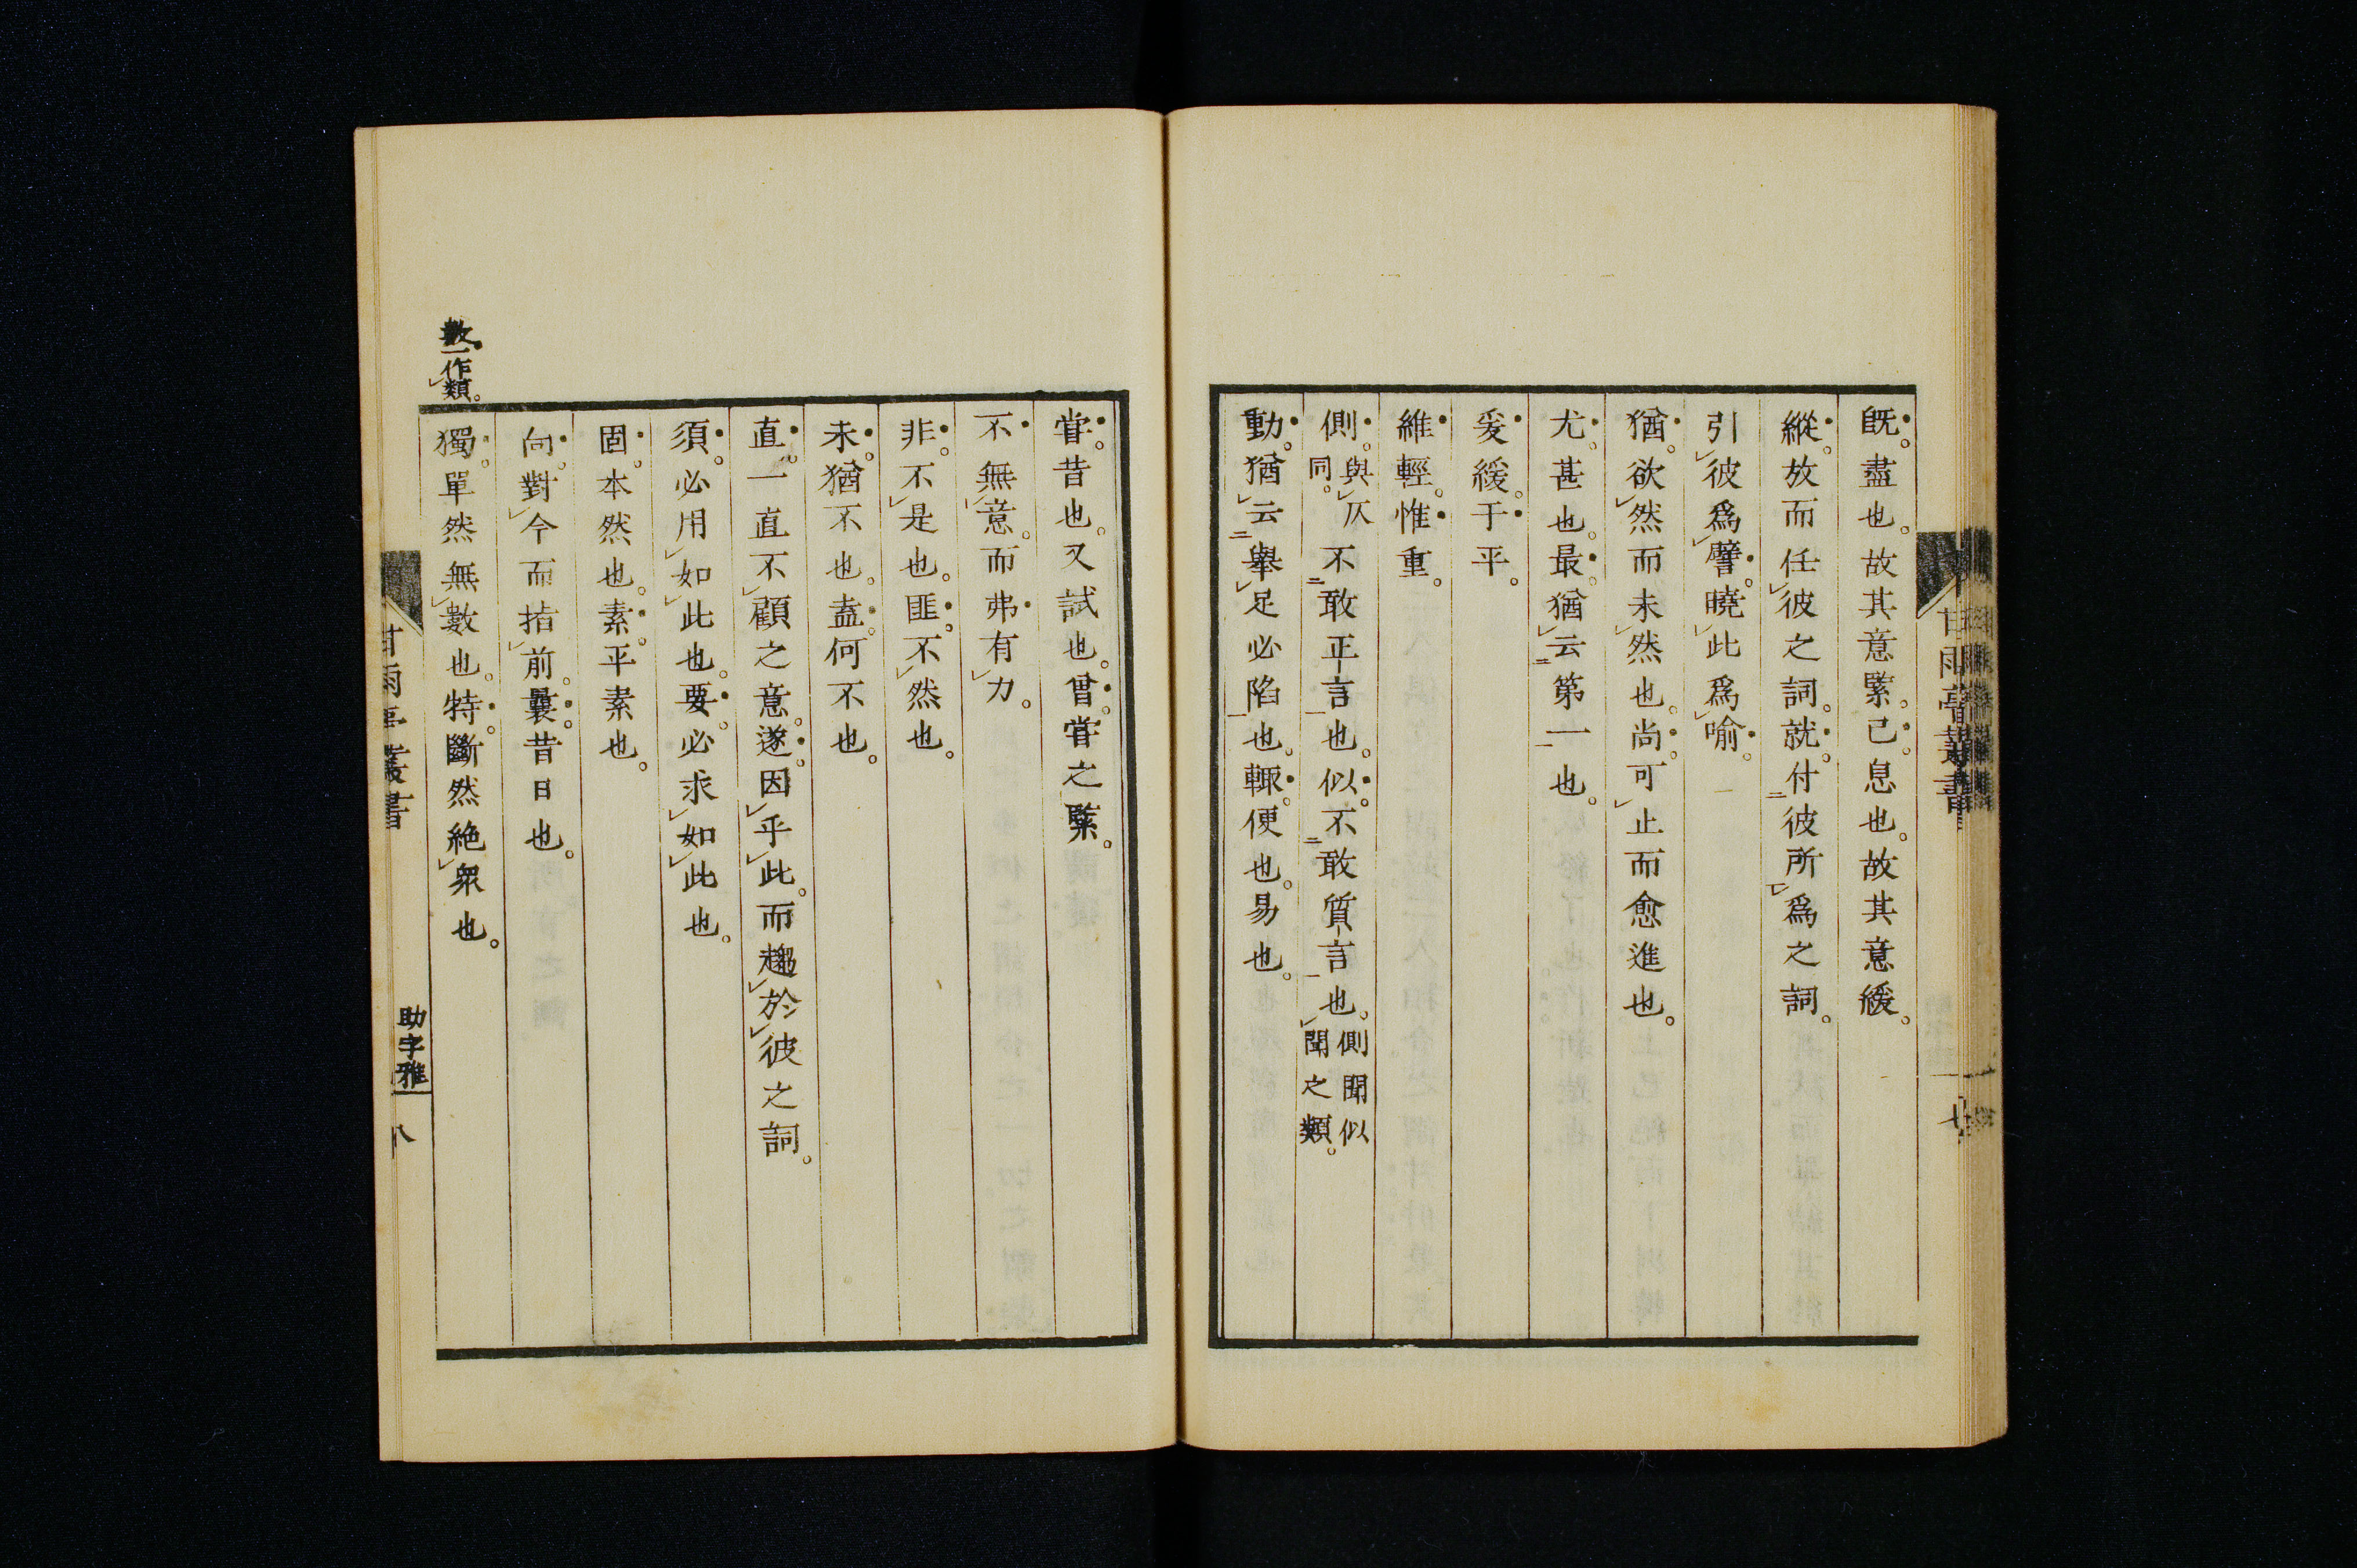 既。盡也。故其意緊。已。息也。故其意緩。
縱。放而任彼之詞。就。付彼所爲之詞。
引彼爲譬。曉此爲喻。
猶。欲然而未然也。尚。可止而愈進也。
尤。甚也。最。猶云第一也。
爰緩。于平。
維輕。惟重。
側。與仄同。不敢正言也。似。不敢質言也。側聞似聞之類。
動。猶云擧足必陷也。輙。便也。易也。
甘雨亭叢書
七
甞。昔也。又試也。曾。甞之緊。
不無意。而弗有力。
非。不是也。匪。不然也。
未。猶不也。盍。何不也。
直。一直不顧之意。遂。因乎此。而趨於彼之詞。
須。必用如此也。要。必求如此也。
固。本然也。素。平素也。
向。對今而指前。曩。昔日也。
獨。單然無數也。特。斷然絶衆也。
數一作類。
甘雨亭叢書
助字雅
八